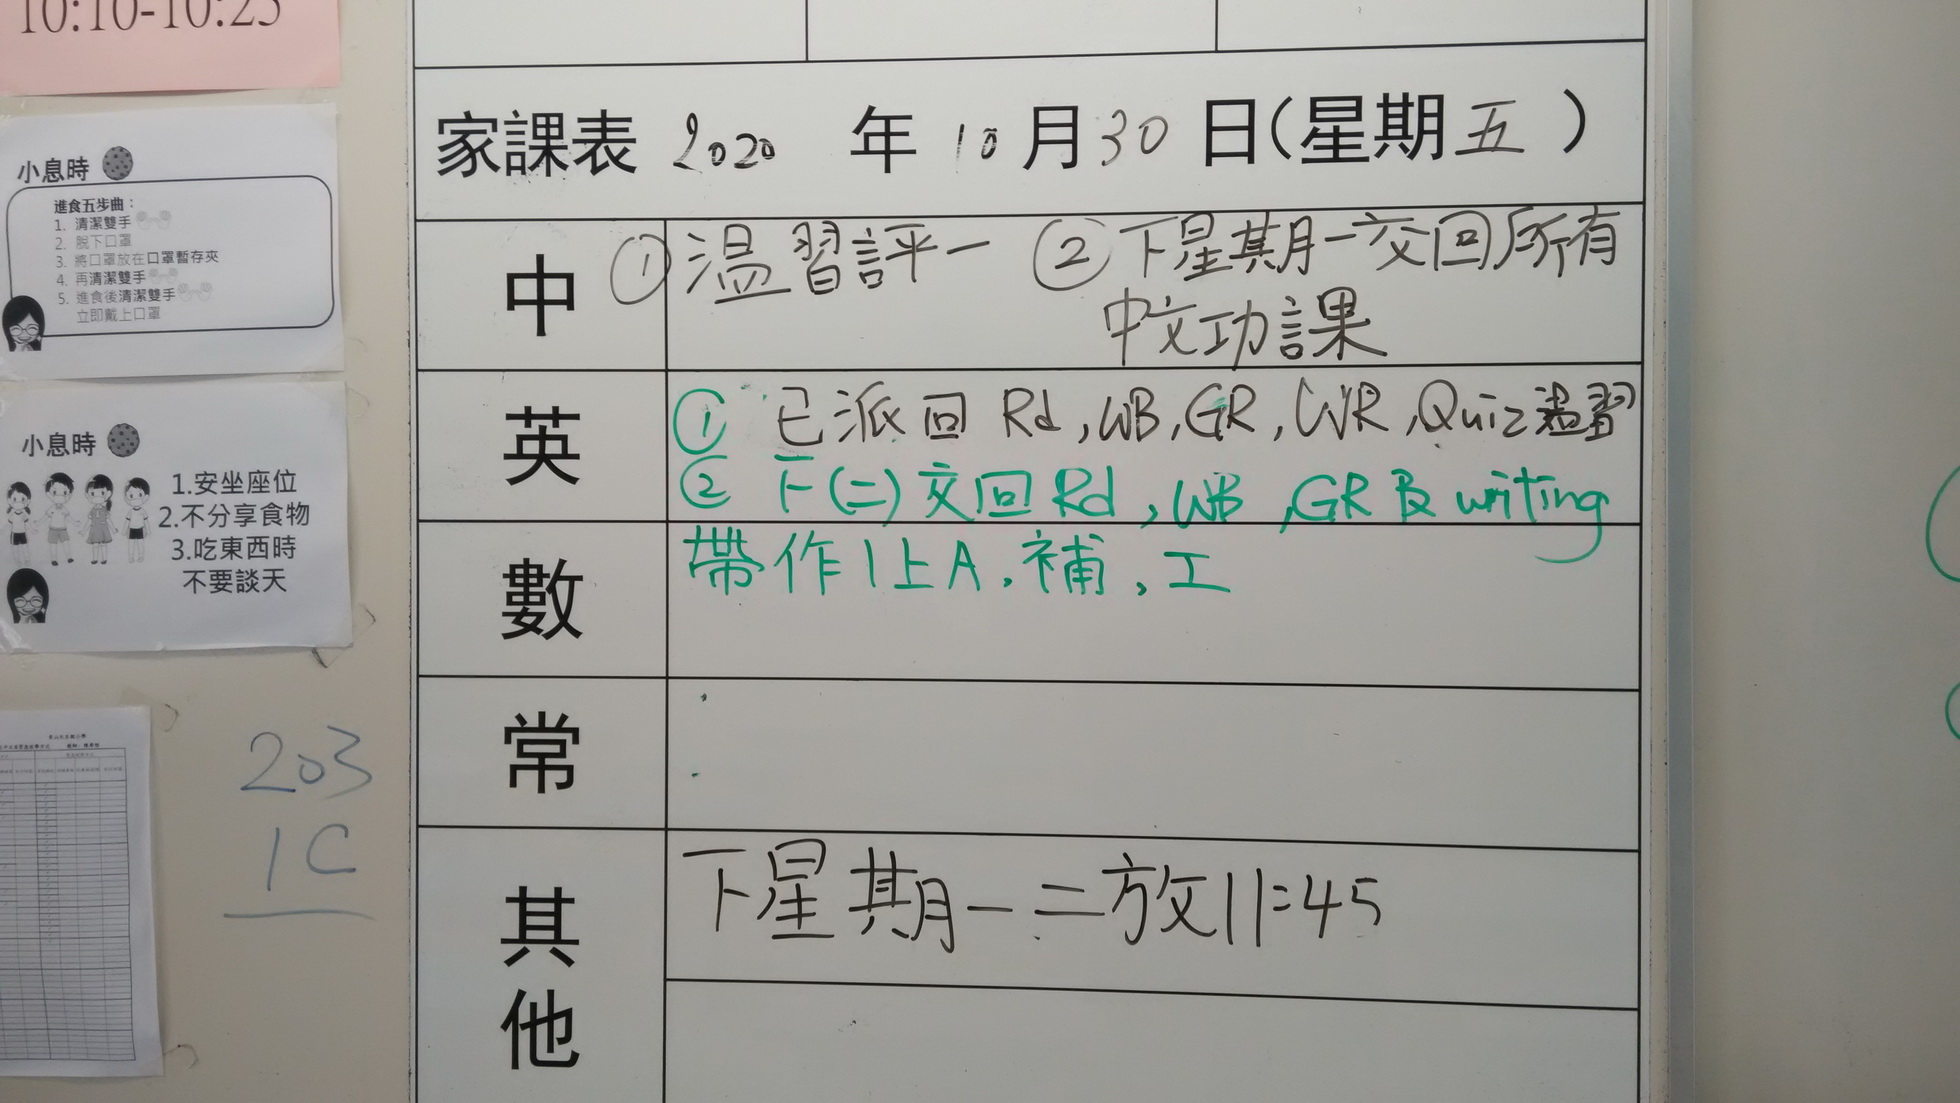 10:10-10:25
小息時
進食五步曲：
1. 清潔雙手
2. 脫下口罩
3. 將口罩放在口罩暫存夾
4. 再清潔雙手
5. 進食後清潔雙手
立即戴上口罩
小息時
1.安坐座位
2.不分享食物
3.吃東西時
不要談天
203
1C
家課表 2020 年 10 月 30 日(星期五)
中 ① 温習評一 ② 下星期一交回所有
中文功課
英 ① 已派回 Rd, WB, GR, WR, Quiz温習
② 下(二)交回 Rd, WB, GR 及 writing
數 帶作1上A, 補, 工
常
其他 下星期一二放11:45